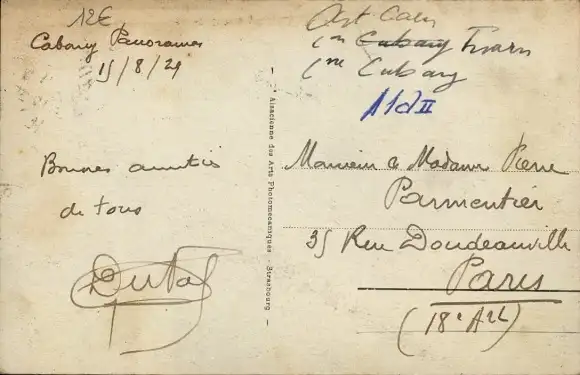 12€
Cabourg Panorama
15/8/29
Bonnes amitiés
de tous
Alsacienne des Arts Photomecaniques - Strasbourg
Art Caen
Cabourg
Cne Cabourg
Monsieur & Madame Pierre
Parmentier
35 Rue Doudeauville
Paris
(18e Art)